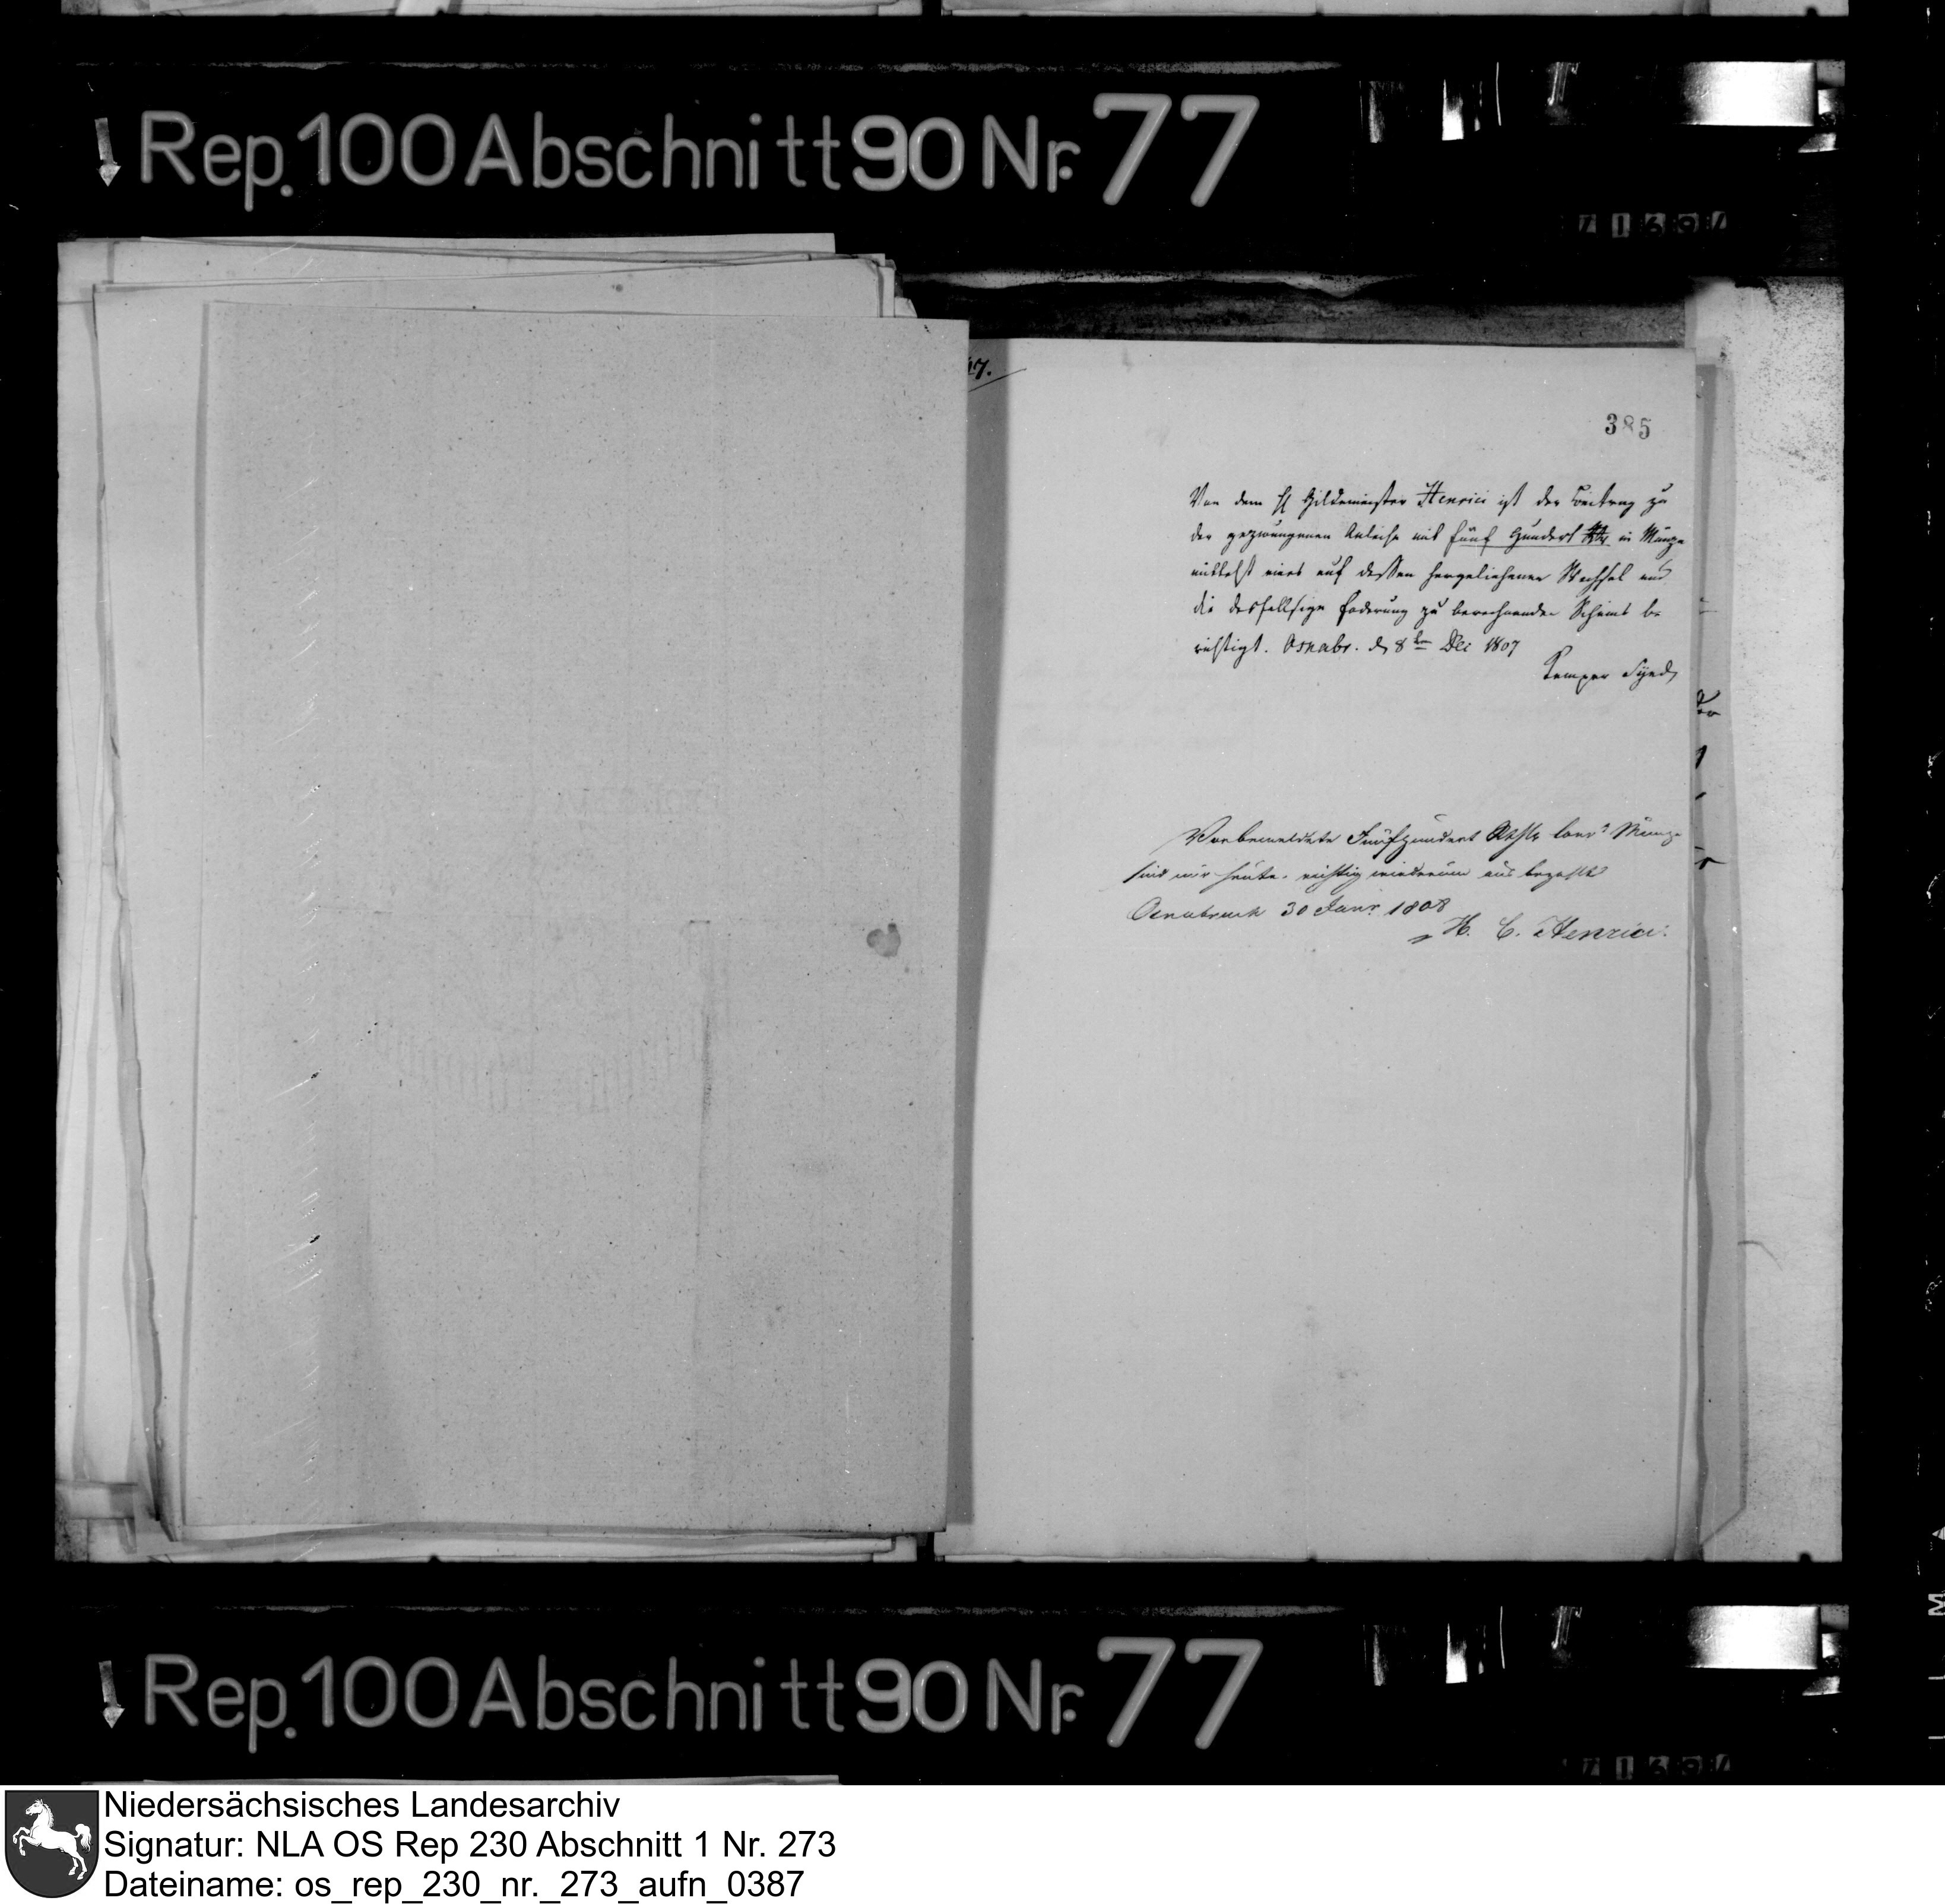 Rep. 100 Abschnitt 90 Nr. 77
385
Von dem H Gildemeister Henrici ist der Beitrag zu
der gezwungenen Anleihe mit fünf Hundert Rthlr in Münze
mittelst eines auf dessen hergeliehenen Wechsel und
die desfallsige Foderung zu berechnenden Scheins be
richtigt. Osnabr. d 8ten Dec 1807
Kemper Synd
Vorbemeldete Fünfhundert Rthlr Conv Münze
sind mir heute richtig wiederum aus bezahlt
Osnabruck 30 Janr 1808
H. C. Henrici
Rep. 100 Abschnitt 90 Nr. 77
Niedersächsisches Landesarchiv
Signatur: NLA OS Rep 230 Abschnitt 1 Nr. 273
Dateiname: os_rep_230_nr._273_aufn_0387